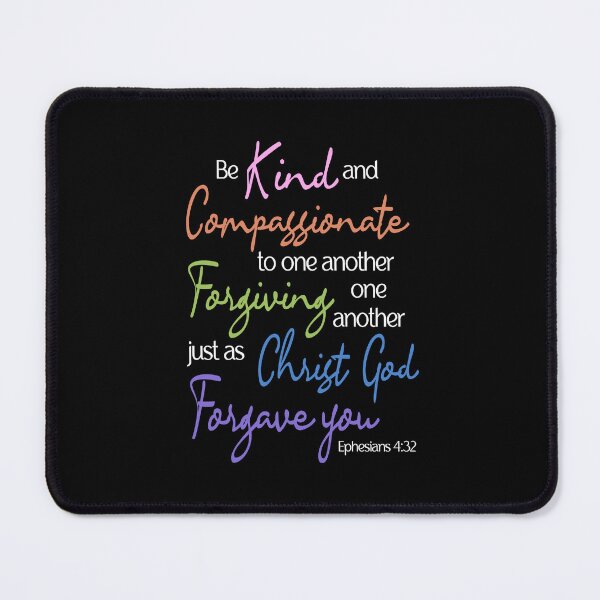 Be Kind and
Compassionate
to one another
Forgiving one
another
just as Christ God
Forgave you
Ephesians 4:32